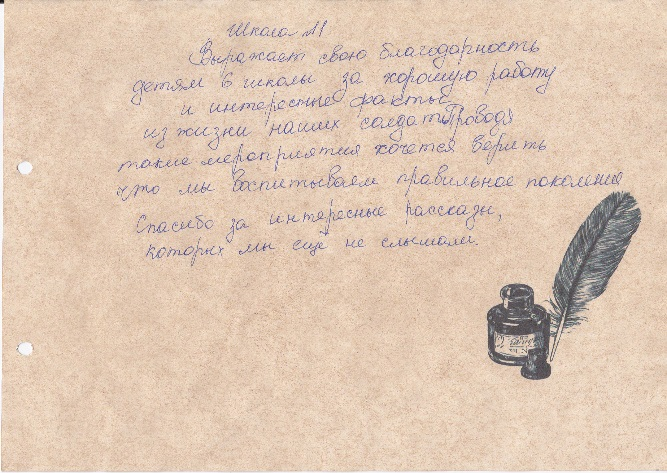 Школа 11
Выражает свою благодарность
детям 6 школы за хорошую работу
и интересные факты
из жизни наших солдат. Проводя
такие мероприятия хочется верить
что мы воспитываем правильное поколение
Спасибо за интересные рассказы,
которых мы ещё не слышали.